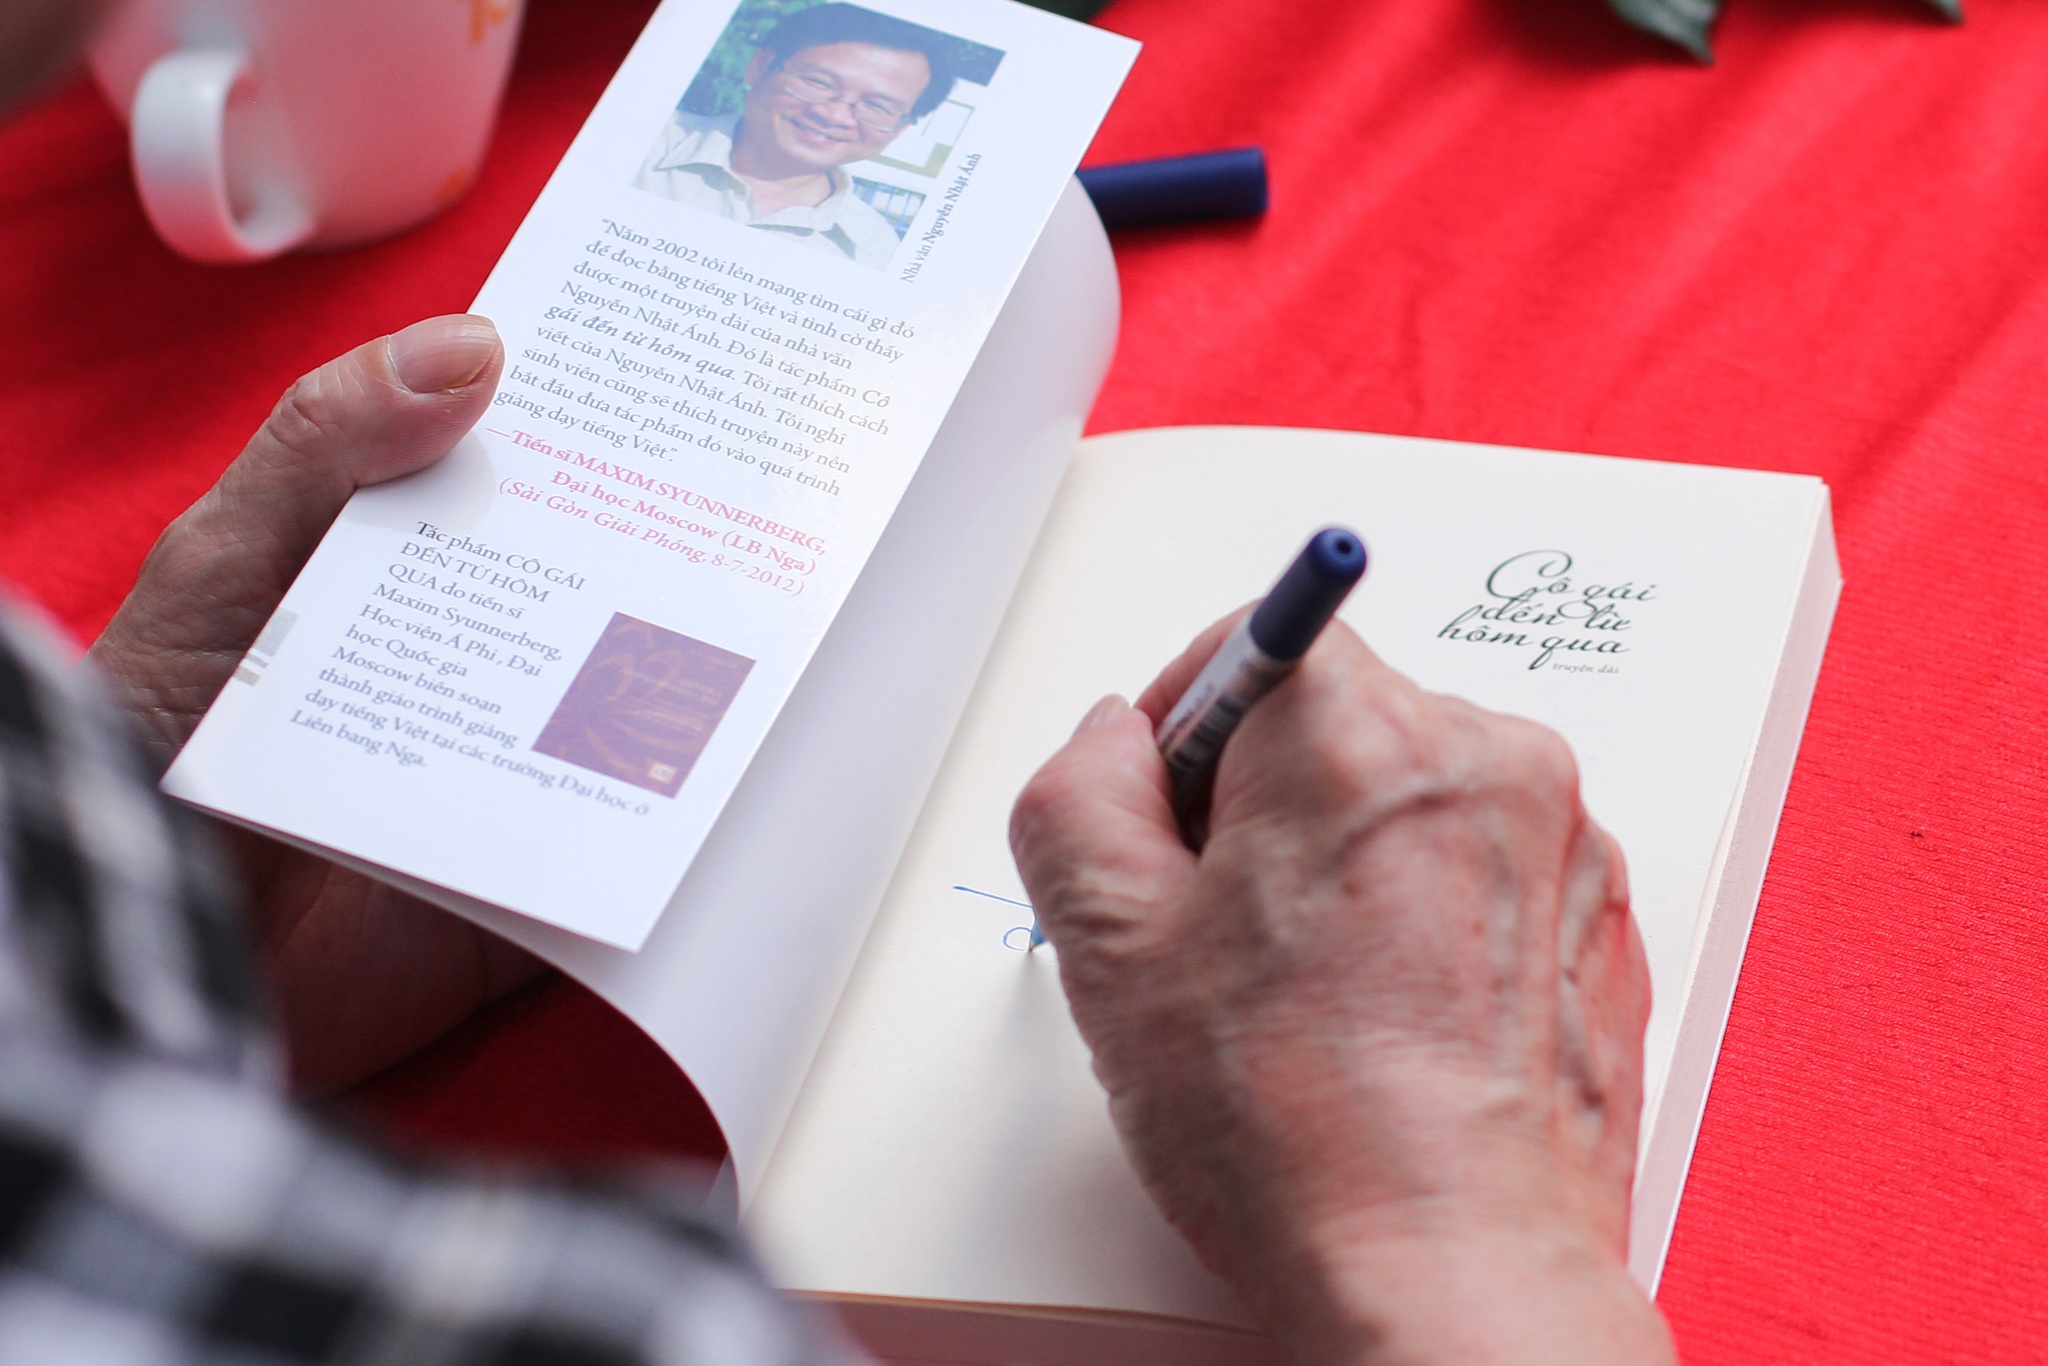 Nhà văn Nguyễn Nhật Ánh
"Năm 2002 tôi lên mạng tìm cái gì đó
để đọc bằng tiếng Việt và tình cờ thấy
được một truyện dài của nhà văn
Nguyễn Nhật Ánh. Đó là tác phẩm Cô
gái đến từ hôm qua. Tôi rất thích cách
viết của Nguyễn Nhật Ánh. Tôi nghĩ
sinh viên cũng sẽ thích truyện này nên
bắt đầu đưa tác phẩm đó vào quá trình
giảng dạy tiếng Việt".
—Tiến sĩ MAXIM SYUNNERBERG,
Đại học Moscow (LB Nga)
(Sài Gòn Giải Phóng, 8-7-2012)
Tác phẩm CÔ GÁI
ĐẾN TỪ HÔM
QUA do tiến sĩ
Maxim Syunnerberg,
Học viện Á Phi , Đại
học Quốc gia
Moscow biên soạn
thành giáo trình giảng
dạy tiếng Việt tại các trường Đại học ở
Liên bang Nga.
Cô gái
đến từ
hôm qua
truyện dài